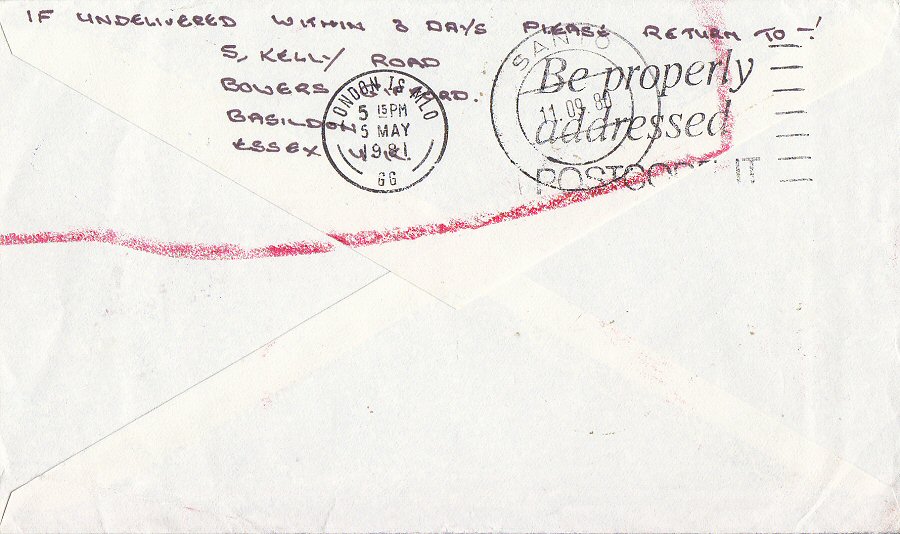 IF UNDELIVERED WITHIN 8 DAYS PLEASE RETURN TO -!
5, KELLY ROAD
BOWERS GIFFORD.
BASILDON
ESSEX U.K.
LONDON IS MLO
5 15 PM
5 MAY
1981
GG
11.09.80
Be properly
addressed
POSTCODE IT